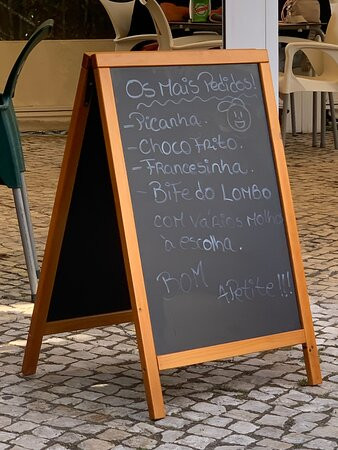 Os Mais Pedidos!
- Picanha.
- Choco Frito.
- Francesinha.
- Bife do LOMBO
com vários Molho
à escolha.
BOM
APetite!!!